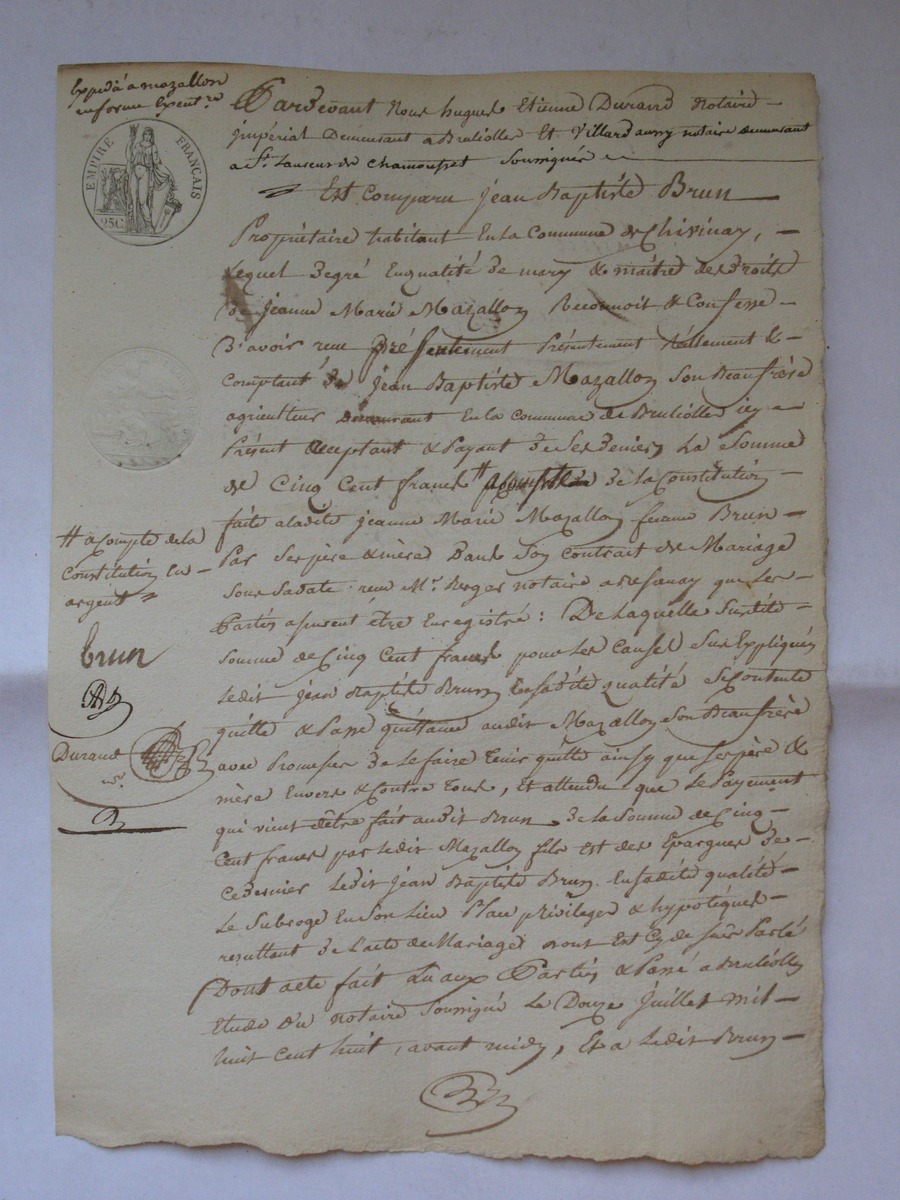 Expédié a mazallon
en forme Exent.re
EMPIRE FRANÇAIS
25C
Pardevant Nous hugues Etienne Durand Notaire
impérial Demeurant a Brulliolle Et Villard aussy notaire demeurant
a St. Laurent de Chamousset Soussignés
Est Comparu Jean Baptiste Brun
Propriétaire habitant En la Commune de Chivinay,
Lequel de gré En qualité de mary & maitre des droits
de Jeanne Marie Mazallon Reconnoit & Confesse
d'avoir reçu présentement Réellement &
Comptant de Jean Baptiste Mazallon Son Beaufrère
agriculteur Demeurant En la Commune de Brulliolle icy
Présent acceptant & Payant de Ses deniers La Somme
de Cinq Cent francs # de la Constitution
faite a ladite Jeanne Marie Mazallon femme Brun
Par Ses père & mère Dans Son Contrat de Mariage
Sous Sa date reçu Mr. Berger notaire que Les
Parties assurent être Enregistré : De laquelle Susdite
Somme de Cinq Cent francs pour Les Causes Sus Expliquées
Ledit Jean Baptiste Brun En Sadite qualité Se Contente
quitte & Passe quittance audit Mazallon Son Beaufrère
avec Promesse de Le faire Tenir quitte ainsy que Ses père &
mère Envers & Contre Tous, Et attendu que Le Payement
qui vient d'être fait audit Brun de la Somme de Cinq
Cent francs par Ledit Mazallon fils Est des Epargnes de
Ce dernier Ledit Jean Baptiste Brun En Sadite qualité
Le Subroge En Son Lieu Place privileges & hypotèques
resultant de L'acte de Mariage dont Est Cy de Sus Parlé
Dont acte fait Lu aux Parties & Passé a Brulliolle
Etude du notaire Soussigné Le Douze Juillet mil
huit Cent huit, avant midy, Et a Ledit Brun
# a Compte de la
Constitution En
argent
brun
Durand